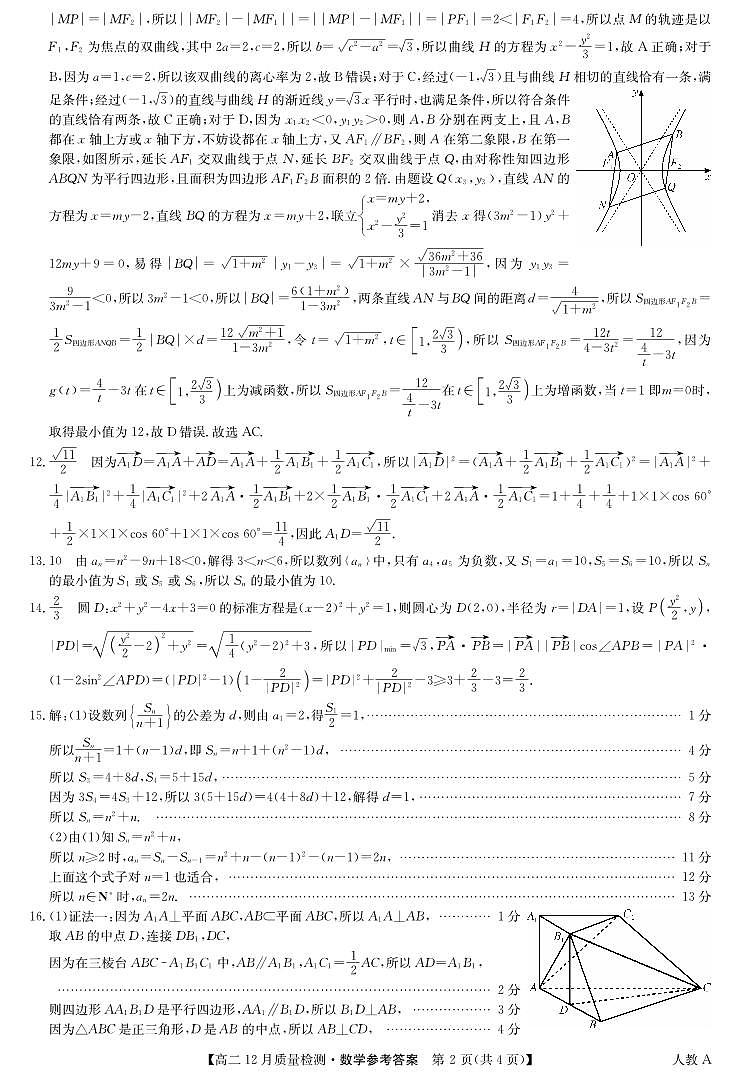 |MP|=|MF₂|,所以||MF₂|-|MF₁||=||MP|-|MF₁||=|PF₁|=2<|F₁F₂|=4,所以点 M 的轨迹是以
F₁,F₂ 为焦点的双曲线,其中 2a=2,c=2,所以 b=√(c²-a²)=√3,所以曲线 H 的方程为 x²-y²/3=1,故 A 正确;对于
B,因为 a=1,c=2,所以该双曲线的离心率为 2,故 B 错误;对于 C,经过(-1,√3)且与曲线 H 相切的直线恰有一条,满
足条件;经过(-1,√3)的直线与曲线 H 的渐近线 y=√3x 平行时,也满足条件,所以符合条件
的直线恰有两条,故 C 正确;对于 D,因为 x₁x₂<0,y₁y₂>0,则 A,B 分别在两支上,且 A,B
都在 x 轴上方或 x 轴下方,不妨设都在 x 轴上方,又 AF₁∥BF₂,则 A 在第二象限,B 在第一
象限,如图所示,延长 AF₁ 交双曲线于点 N,延长 BF₂ 交双曲线于点 Q,由对称性知四边形
ABQN 为平行四边形,且面积为四边形 AF₁F₂B 面积的 2 倍.由题设 Q(x₃,y₃),直线 AN 的
方程为 x=my-2,直线 BQ 的方程为 x=my+2,联立{x=my+2, x²-y²/3=1 消去 x 得(3m²-1)y²+
12my+9=0,易得|BQ|=√(1+m²)|y₁-y₃|=√(1+m²)×√(36m²+36)/|3m²-1|,因为 y₁y₃=
9/(3m²-1)<0,所以 3m²-1<0,所以|BQ|=6(1+m²)/(1-3m²),两条直线 AN 与 BQ 间的距离 d=4/√(1+m²),所以 S四边形AF₁F₂B=
1/2 S四边形ANQB=1/2|BQ|×d=12√(m²+1)/(1-3m²),令 t=√(1+m²),t∈[1,2√3/3),所以 S四边形AF₁F₂B=12t/(4-3t²)=12/(4/t-3t),因为
g(t)=4/t-3t 在 t∈[1,2√3/3)上为减函数,所以 S四边形AF₁F₂B=12/(4/t-3t)在 t∈[1,2√3/3)上为增函数,当 t=1 即m=0时,
取得最小值为 12,故 D 错误.故选 AC.
y
A
B
F₁
O
F₂
x
N
Q
12.√11/2 因为A₁D→=A₁A→+AD→=A₁A→+1/2 A₁B₁→+1/2 A₁C₁→,所以|A₁D→|²=(A₁A→+1/2 A₁B₁→+1/2 A₁C₁→)²=|A₁A→|²+
1/4|A₁B₁→|²+1/4|A₁C₁→|²+2 A₁A→·1/2 A₁B₁→+2×1/2 A₁B₁→·1/2 A₁C₁→+2 A₁A→·1/2 A₁C₁→=1+1/4+1/4+1×1×cos 60°
+1/2×1×1×cos 60°+1×1×cos 60°=11/4,因此 A₁D=√11/2.
13.10 由 aₙ=n²-9n+18<0,解得 3<n<6,所以数列{aₙ}中,只有 a₄,a₅ 为负数,又 S₁=a₁=10,S₅=S₆=10,所以 Sₙ
的最小值为 S₁ 或 S₅ 或 S₆,所以 Sₙ 的最小值为 10.
14.2/3 圆 D:x²+y²-4x+3=0 的标准方程是(x-2)²+y²=1,则圆心为 D(2,0),半径为 r=|DA|=1,设 P(y²/2,y),
|PD|=√((y²/2-2)²+y²)=√(1/4(y²-2)²+3),所以|PD|min=√3,PA→·PB→=|PA→||PB→|cos∠APB=|PA|²·
(1-2sin²∠APD)=(|PD|²-1)(1-2/|PD|²)=|PD|²+2/|PD|²-3≥3+2/3-3=2/3.
15.解:(1)设数列{Sₙ/(n+1)}的公差为 d,则由 a₁=2,得S₁/2=1,………… 1 分
所以Sₙ/(n+1)=1+(n-1)d,即 Sₙ=n+1+(n²-1)d,………… 4 分
所以 S₃=4+8d,S₄=5+15d,………… 5 分
因为 3S₄=4S₃+12,所以 3(5+15d)=4(4+8d)+12,解得 d=1,………… 7 分
所以 Sₙ=n²+n. ………… 8 分
(2)由(1)知 Sₙ=n²+n,
所以 n≥2 时,aₙ=Sₙ-Sₙ₋₁=n²+n-(n-1)²-(n-1)=2n,………… 11 分
上面这个式子对 n=1 也适合,………… 12 分
所以 n∈N* 时,aₙ=2n. ………… 13 分
16.(1)证法一:因为 A₁A⊥平面 ABC,AB⊂平面 ABC,所以 A₁A⊥AB,………… 1 分
取 AB 的中点 D,连接 DB₁,DC,
因为在三棱台 ABC-A₁B₁C₁ 中,AB∥A₁B₁,A₁C₁=1/2 AC,所以 AD=A₁B₁,
………… 2 分
则四边形 AA₁B₁D 是平行四边形,AA₁∥B₁D,所以 B₁D⊥AB,………… 3 分
因为△ABC 是正三角形,D 是 AB 的中点,所以 AB⊥CD,………… 4 分
A₁
C₁
B₁
A
C
D
B
【高二 12 月质量检测·数学参考答案 第 2 页(共 4 页)】 人教 A